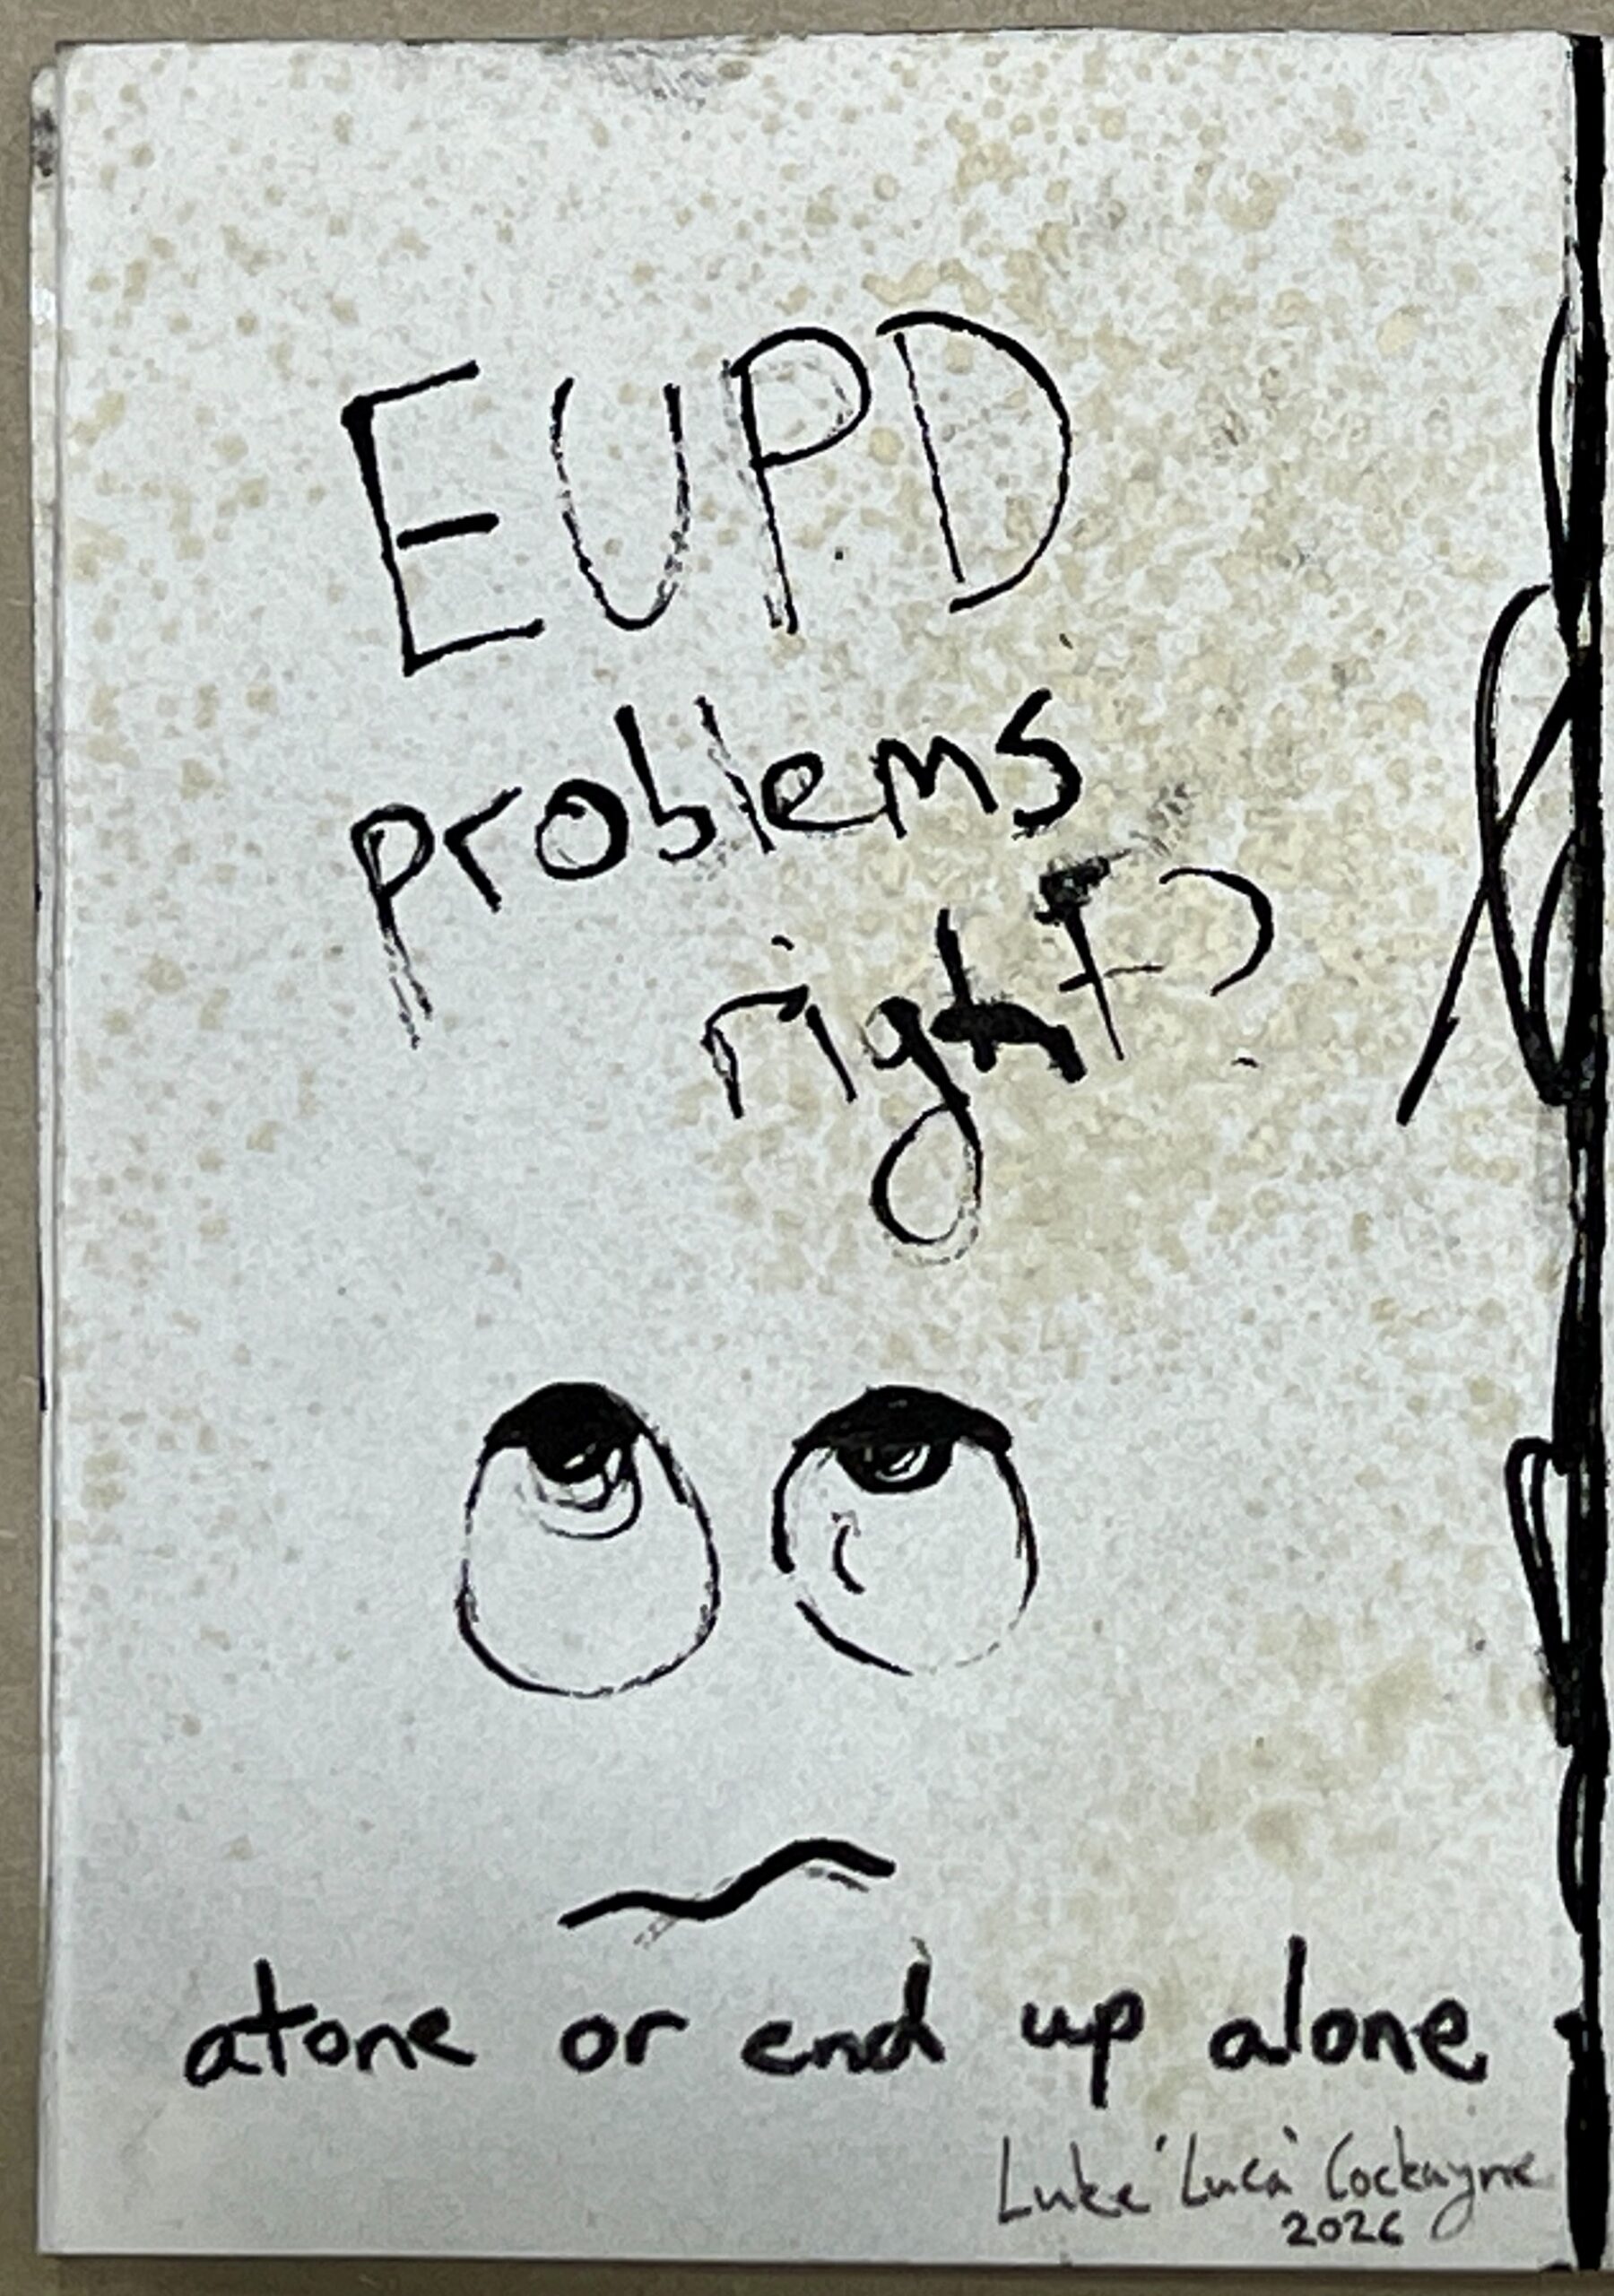 EUPD
problems
right?
atone or end up alone
Luke 'Luca' Cockayne
2026